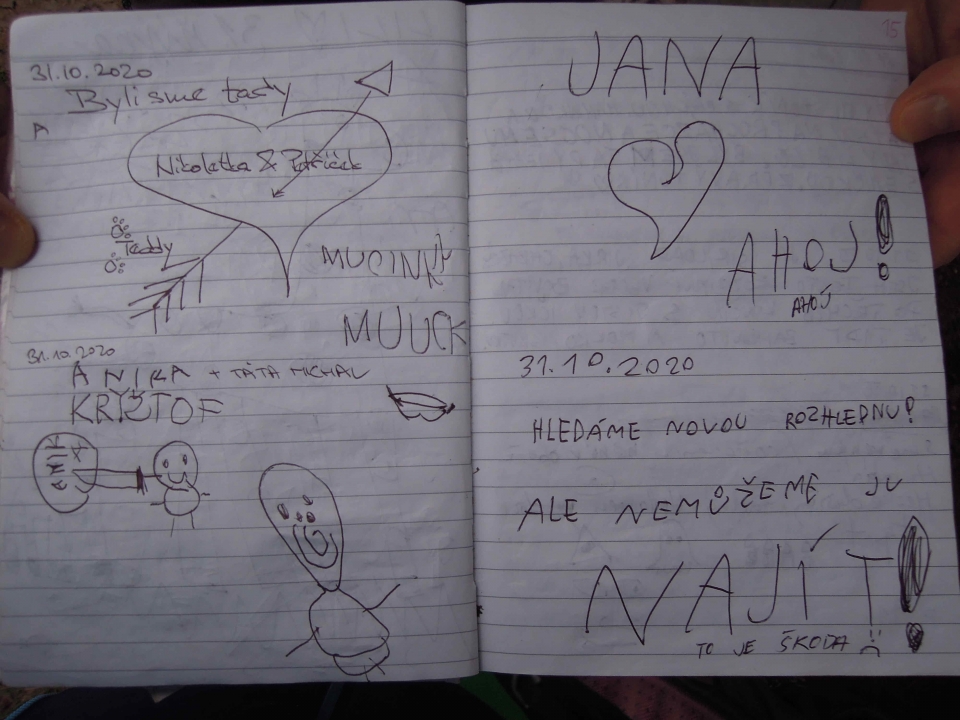 31.10.2020
Byli sme tady
A
Nikoletka & Patriček
Teddy
MUCINKY
MUUCK
31.10.2020
ANIKA + TÁTA MICHAL
KRYŠTOF
15
JANA
AHOJ!
AHOJ
31.10.2020
HLEDÁME NOVOU ROZHLEDNU!
ALE NEMŮŽEME JU
NAJÍT!
TO JE ŠKODA :(